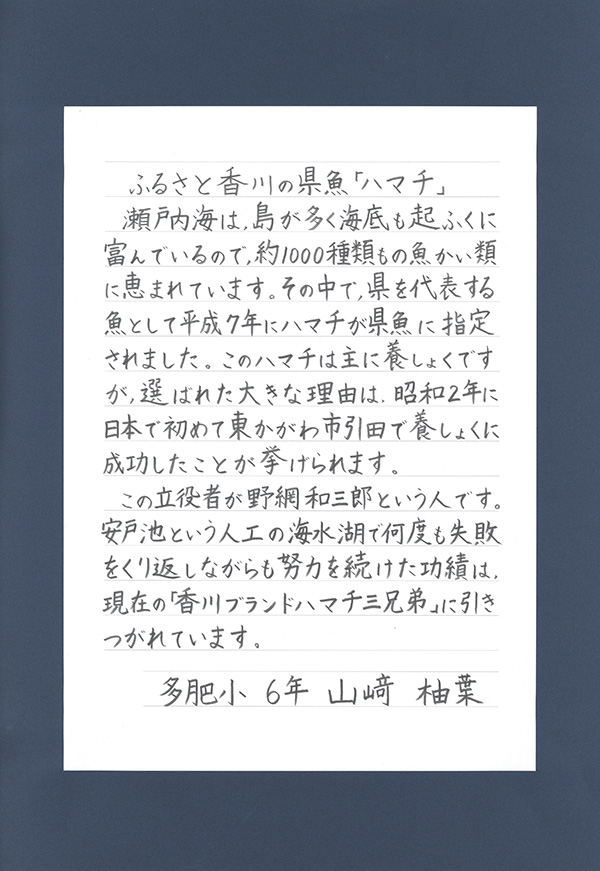 ふるさと香川の県魚「ハマチ」
瀬戸内海は、島が多く海底も起ふくに
富んでいるので、約1000種類もの魚かい類
に恵まれています。その中で、県を代表する
魚として平成7年にハマチが県魚に指定
されました。このハマチは主に養しょくです
が、選ばれた大きな理由は、昭和2年に
日本で初めて東かがわ市引田で養しょくに
成功したことが挙げられます。
この立役者が野網和三郎という人です。
安戸池という人工の海水湖で何度も失敗
をくり返しながらも努力を続けた功績は、
現在の「香川ブランドハマチ三兄弟」に引き
つがれています。
多肥小 6年 山﨑 柚葉